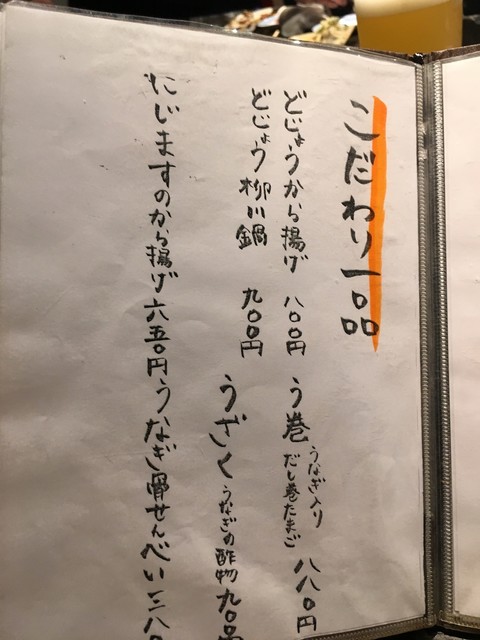 こだわり一品
どじょうから揚げ 八〇〇円
う巻 うなぎ入り だし巻たまご 八八〇円
どじょう柳川鍋 九〇〇円
うざく うなぎの酢物 九〇〇
にじますのから揚げ 六五〇円
うなぎ骨せんべい 三八〇